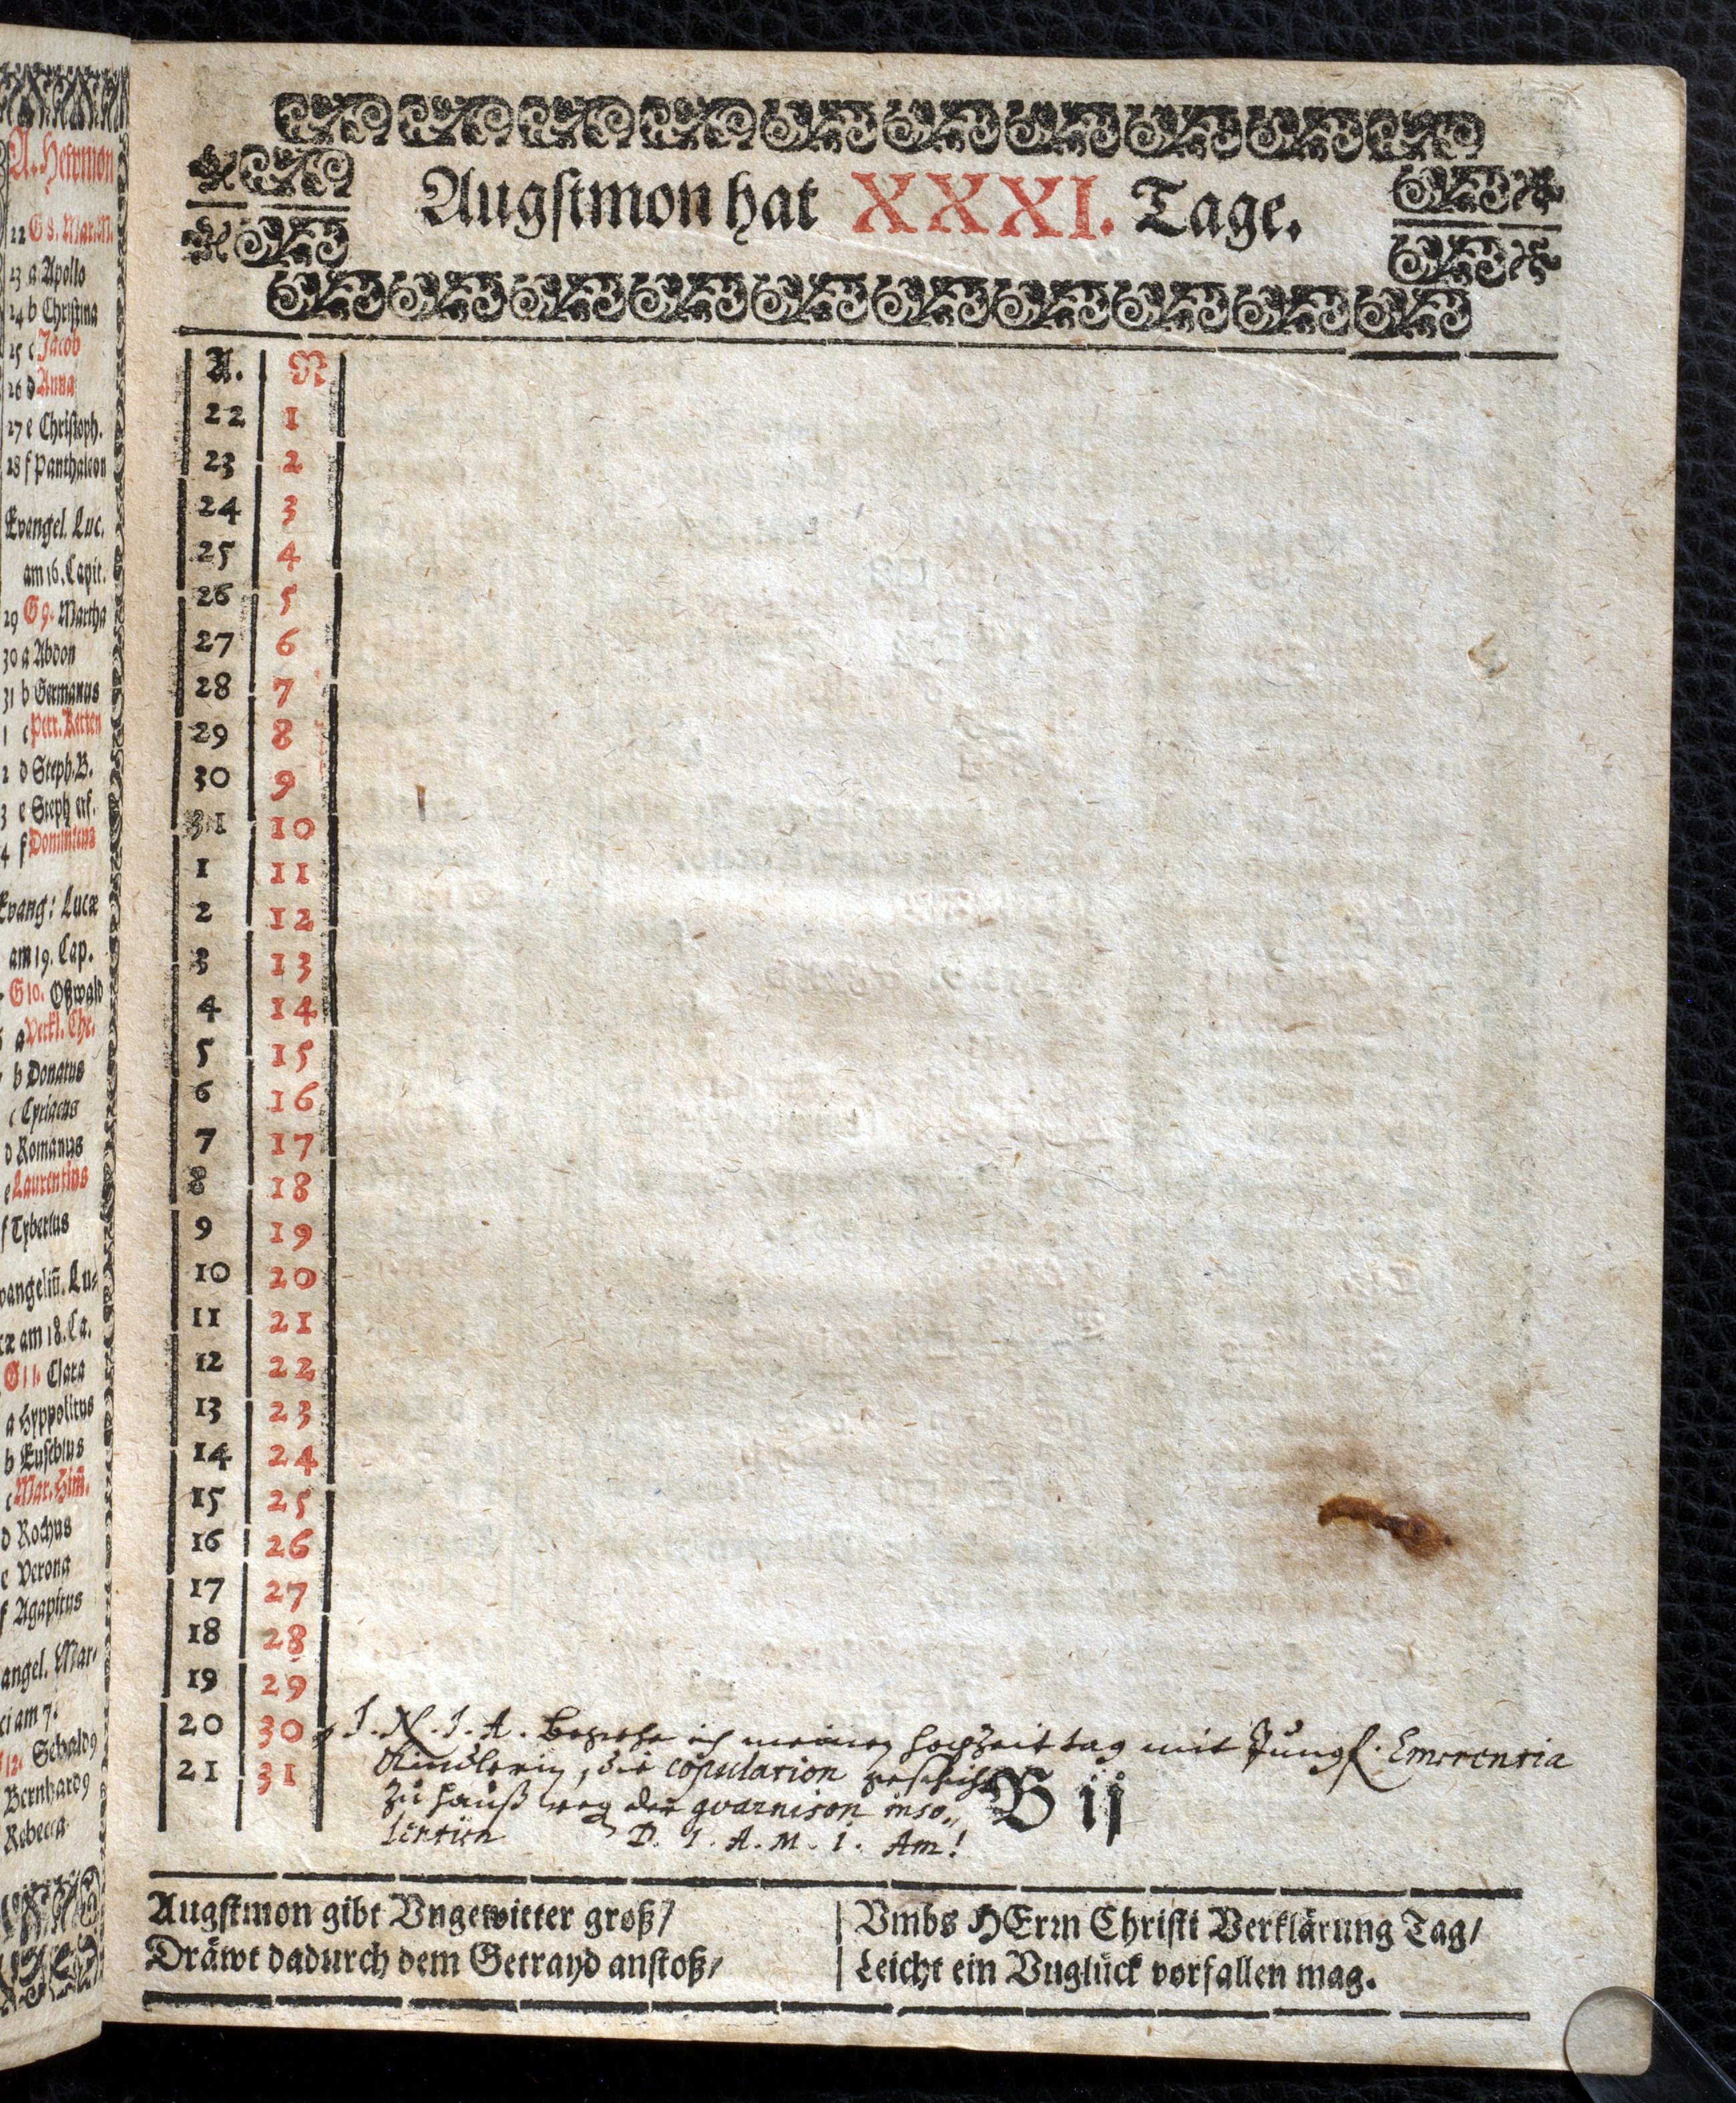 A. Hewmon
22 G 8. Mar. M.
23 a Apollo
24 b Christina
25 c Jacob
26 d Anna
27 e Christoph.
28 f Panthaleon
Evangel. Luc.
am 16. Capit.
29 G 9. Martha
30 a Abdon
31 b Germanus
1 c Petr. Ketten
2 d Steph. B.
3 e Steph erf.
4 f Dominicus
Evang: Lucæ
am 19. Cap.
G 10. Oßwald
a Verkl. Chr.
b Donatus
c Cyriacus
d Romanus
e Laurentius
f Tyberius
vangeliū. Lu-
cæ am 18. Ca.
G 11. Clara
a Hyppolitus
b Eusebius
c Mar. Him̄.
d Rochus
e Verona
f Agapitus
angel. Mar-
ci am 7.
12. Sebald9
Bernhard9
Rebecca
Augstmon hat XXXI. Tage.
A. N
22 1
23 2
24 3
25 4
26 5
27 6
28 7
29 8
30 9
31 10
1 11
2 12
3 13
4 14
5 15
6 16
7 17
8 18
9 19
10 20
11 21
12 22
13 23
14 24
15 25
16 26
17 27
18 28
19 29
20 30 J. N. J. A. ich meinen hochzeit tag mit Jungf. Emerentia
21 31 die copulation geschicht
zu hauß weg der gvarnison inso„
lentien D. J. A. M. J. Am!
B ij
Augstmon gibt Vngewitter groß/
Dräwt dadurch dem Getrayd anstoß/
Vmbs HErrn Christi Verklärung Tag/
Leicht ein Vuglück vorfallen mag.